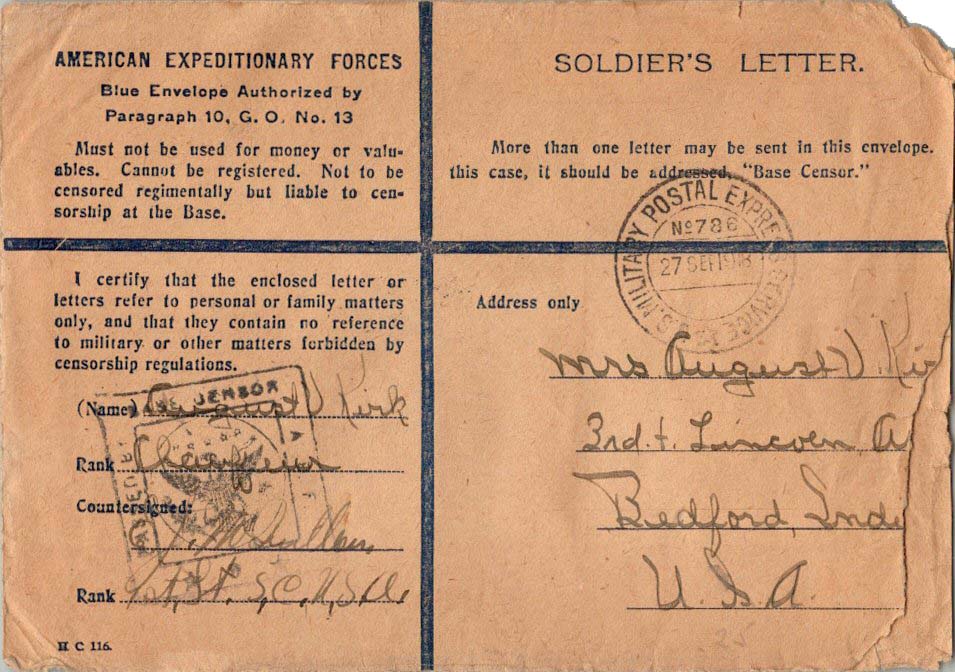 AMERICAN EXPEDITIONARY FORCES
Blue Envelope Authorized by
Paragraph 10, G. O. No. 13
Must not be used for money or valu-
ables. Cannot be registered. Not to be
censored regimentally but liable to cen-
sorship at the Base.
SOLDIER'S LETTER.
More than one letter may be sent in this envelope.
this case, it should be addressed, "Base Censor."
I certify that the enclosed letter or
letters refer to personal or family matters
only, and that they contain no reference
to military or other matters forbidden by
censorship regulations.
(Name) August V Kirk
Rank Chauffeur
Countersigned:
Rank 1st. Lt. S.C. U.S.A.
H C 116.
BASE CENSOR
U.S. MILITARY POSTAL EXPRESS SERVICE
No 786
27 SEP 1918
Address only
Mrs August V. Kir
3rd + Lincoln A
Bedford Ind
U.S.A.
25